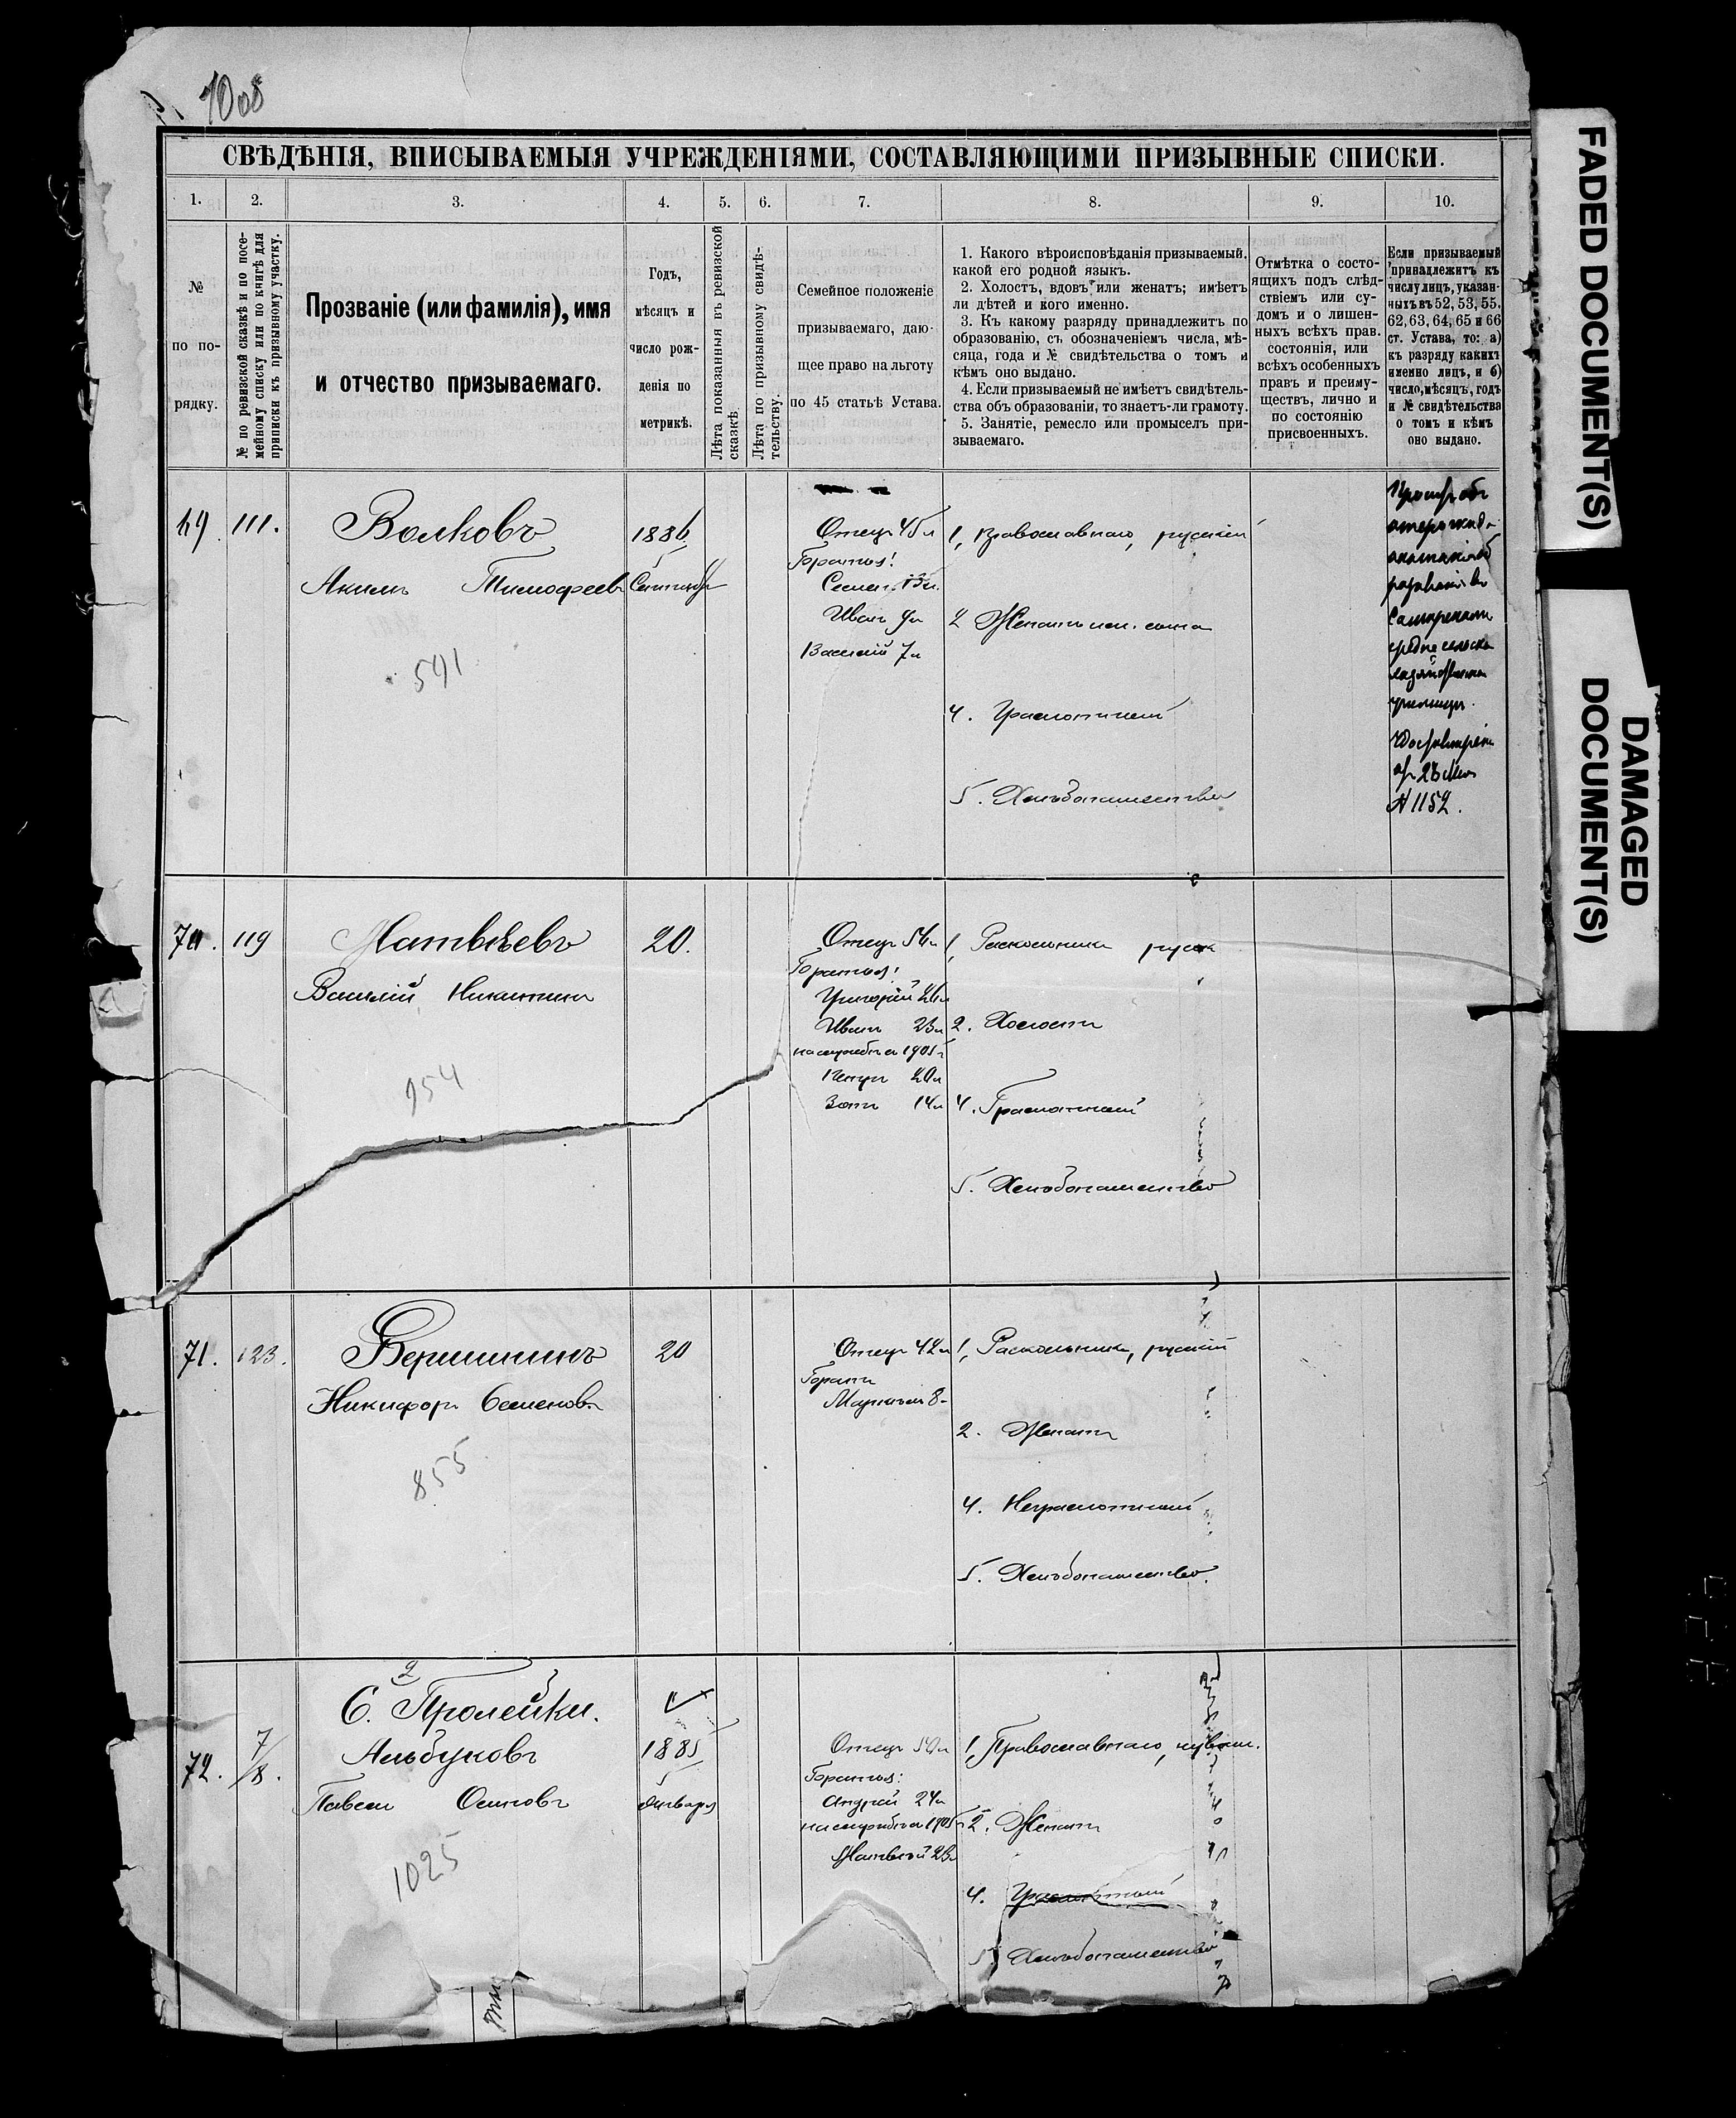 1908
СВѢДѢНІЯ, ВПИСЫВАЕМЫЯ УЧРЕЖДЕНІЯМИ, СОСТАВЛЯЮЩИМИ ПРИЗЫВНЫЕ СПИСКИ.
1. 2. 3. 4. 5. 6. 7. 8. 9. 10.
№
по по-
рядку.
№ по ревизской сказкѣ и по посе-
мейному списку или по книгѣ для
приписки къ призывному участку.
Прозваніе (или фамилія), имя
и отчество призываемаго.
Годъ,
мѣсяцъ и
число рож-
денія по
метрикѣ.
Лѣта показанныя въ ревизской
сказкѣ.
Лѣта по призывному свидѣ-
тельству.
Семейное положеніе
призываемаго, даю-
щее право на льготу
по 45 статьѣ Устава.
1. Какого вѣроисповѣданія призываемый,
какой его родной языкъ.
2. Холостъ, вдовъ или женатъ; имѣетъ
ли дѣтей и кого именно.
3. Къ какому разряду принадлежитъ по
образованію, съ обозначеніемъ числа, мѣ-
сяца, года и № свидѣтельства о томъ и
кѣмъ оно выдано.
4. Если призываемый не имѣетъ свидѣтель-
ства объ образованіи, то знаетъ-ли грамоту.
5. Занятіе, ремесло или промыселъ при-
зываемаго.
Отмѣтка о состо-
ящихъ подъ слѣд-
ствіемъ или су-
домъ и о лишен-
ныхъ всѣхъ прав.
состоянія, или
всѣхъ особенныхъ
правъ и преиму-
ществъ, лично и
по состоянію
присвоенныхъ.
Если призываемый
принадлежитъ къ
числу лицъ, указан-
ныхъ въ 52, 53, 55,
62, 63, 64, 65 и 66
ст. Устава, то: а)
къ разряду какихъ
именно лицъ, и б)
число, мѣсяцъ, годъ
и № свидѣтельства
о томъ и кѣмъ
оно выдано.
69. 111. Волковъ
Акимъ Тимофеевъ
591
1886
Сентября
Отецъ 45 л
Братья:
Семенъ 13 л.
Иванъ 9 л
Василій 7 л
1, Православнаго, русскій
2 Женатъ
4. Грамотный
5. Хлѣбопашество
№ 1152.
70. 119 Матвѣевъ
Василій Никитинъ
954
20.
Отецъ 54 л
Братья:
Григорій 26 л
Иванъ 23 л
на службѣ съ 1905 г
Петръ 20 л
Зотъ 14 л
1, Раскольникъ русск
2. Холостъ
4. Грамотный
5. Хлѣбопашество
71. 123. Вершининъ
Никифоръ Семеновъ
855
20
Отецъ 42 л
Братъ
8
1, Раскольникъ, русскій
2. Женатъ
4. Неграмотный
5. Хлѣбопашество.
С. Пролейки.
72. 7/8. Альбуковъ
Павелъ Осиповъ
1025
1885
Января
Отецъ 50 л
Братья:
Андрей 24 л
на службѣ съ 1905 г
Матвѣй 23 л
1, Православнаго,
2. Женатъ
4. Грамотный
5. Хлѣбопашество
FADED DOCUMENT(S)
DAMAGED
DOCUMENT(S)